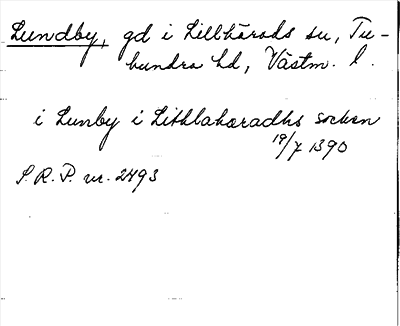 Lundby, gd i Lillhärads sn, Tu-
hundra hd, Västm. l.
i Lunby i Lithlahæradhs sochan
19/7 1390
S.R.P. nr. 2493